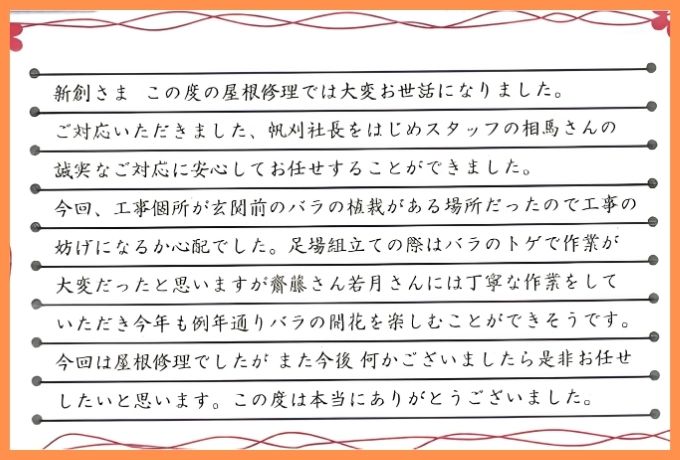 新創さま この度の屋根修理では大変お世話になりました。
ご対応いただきました、帆刈社長をはじめスタッフの相馬さんの
誠実なご対応に安心してお任せすることができました。
今回、工事個所が玄関前のバラの植栽がある場所だったので工事の
妨げになるか心配でした。足場組立ての際はバラのトゲで作業が
大変だったと思いますが齋藤さん若月さんには丁寧な作業をして
いただき今年も例年通りバラの開花を楽しむことができそうです。
今回は屋根修理でしたが また今後 何かございましたら是非お任せ
したいと思います。この度は本当にありがとうございました。